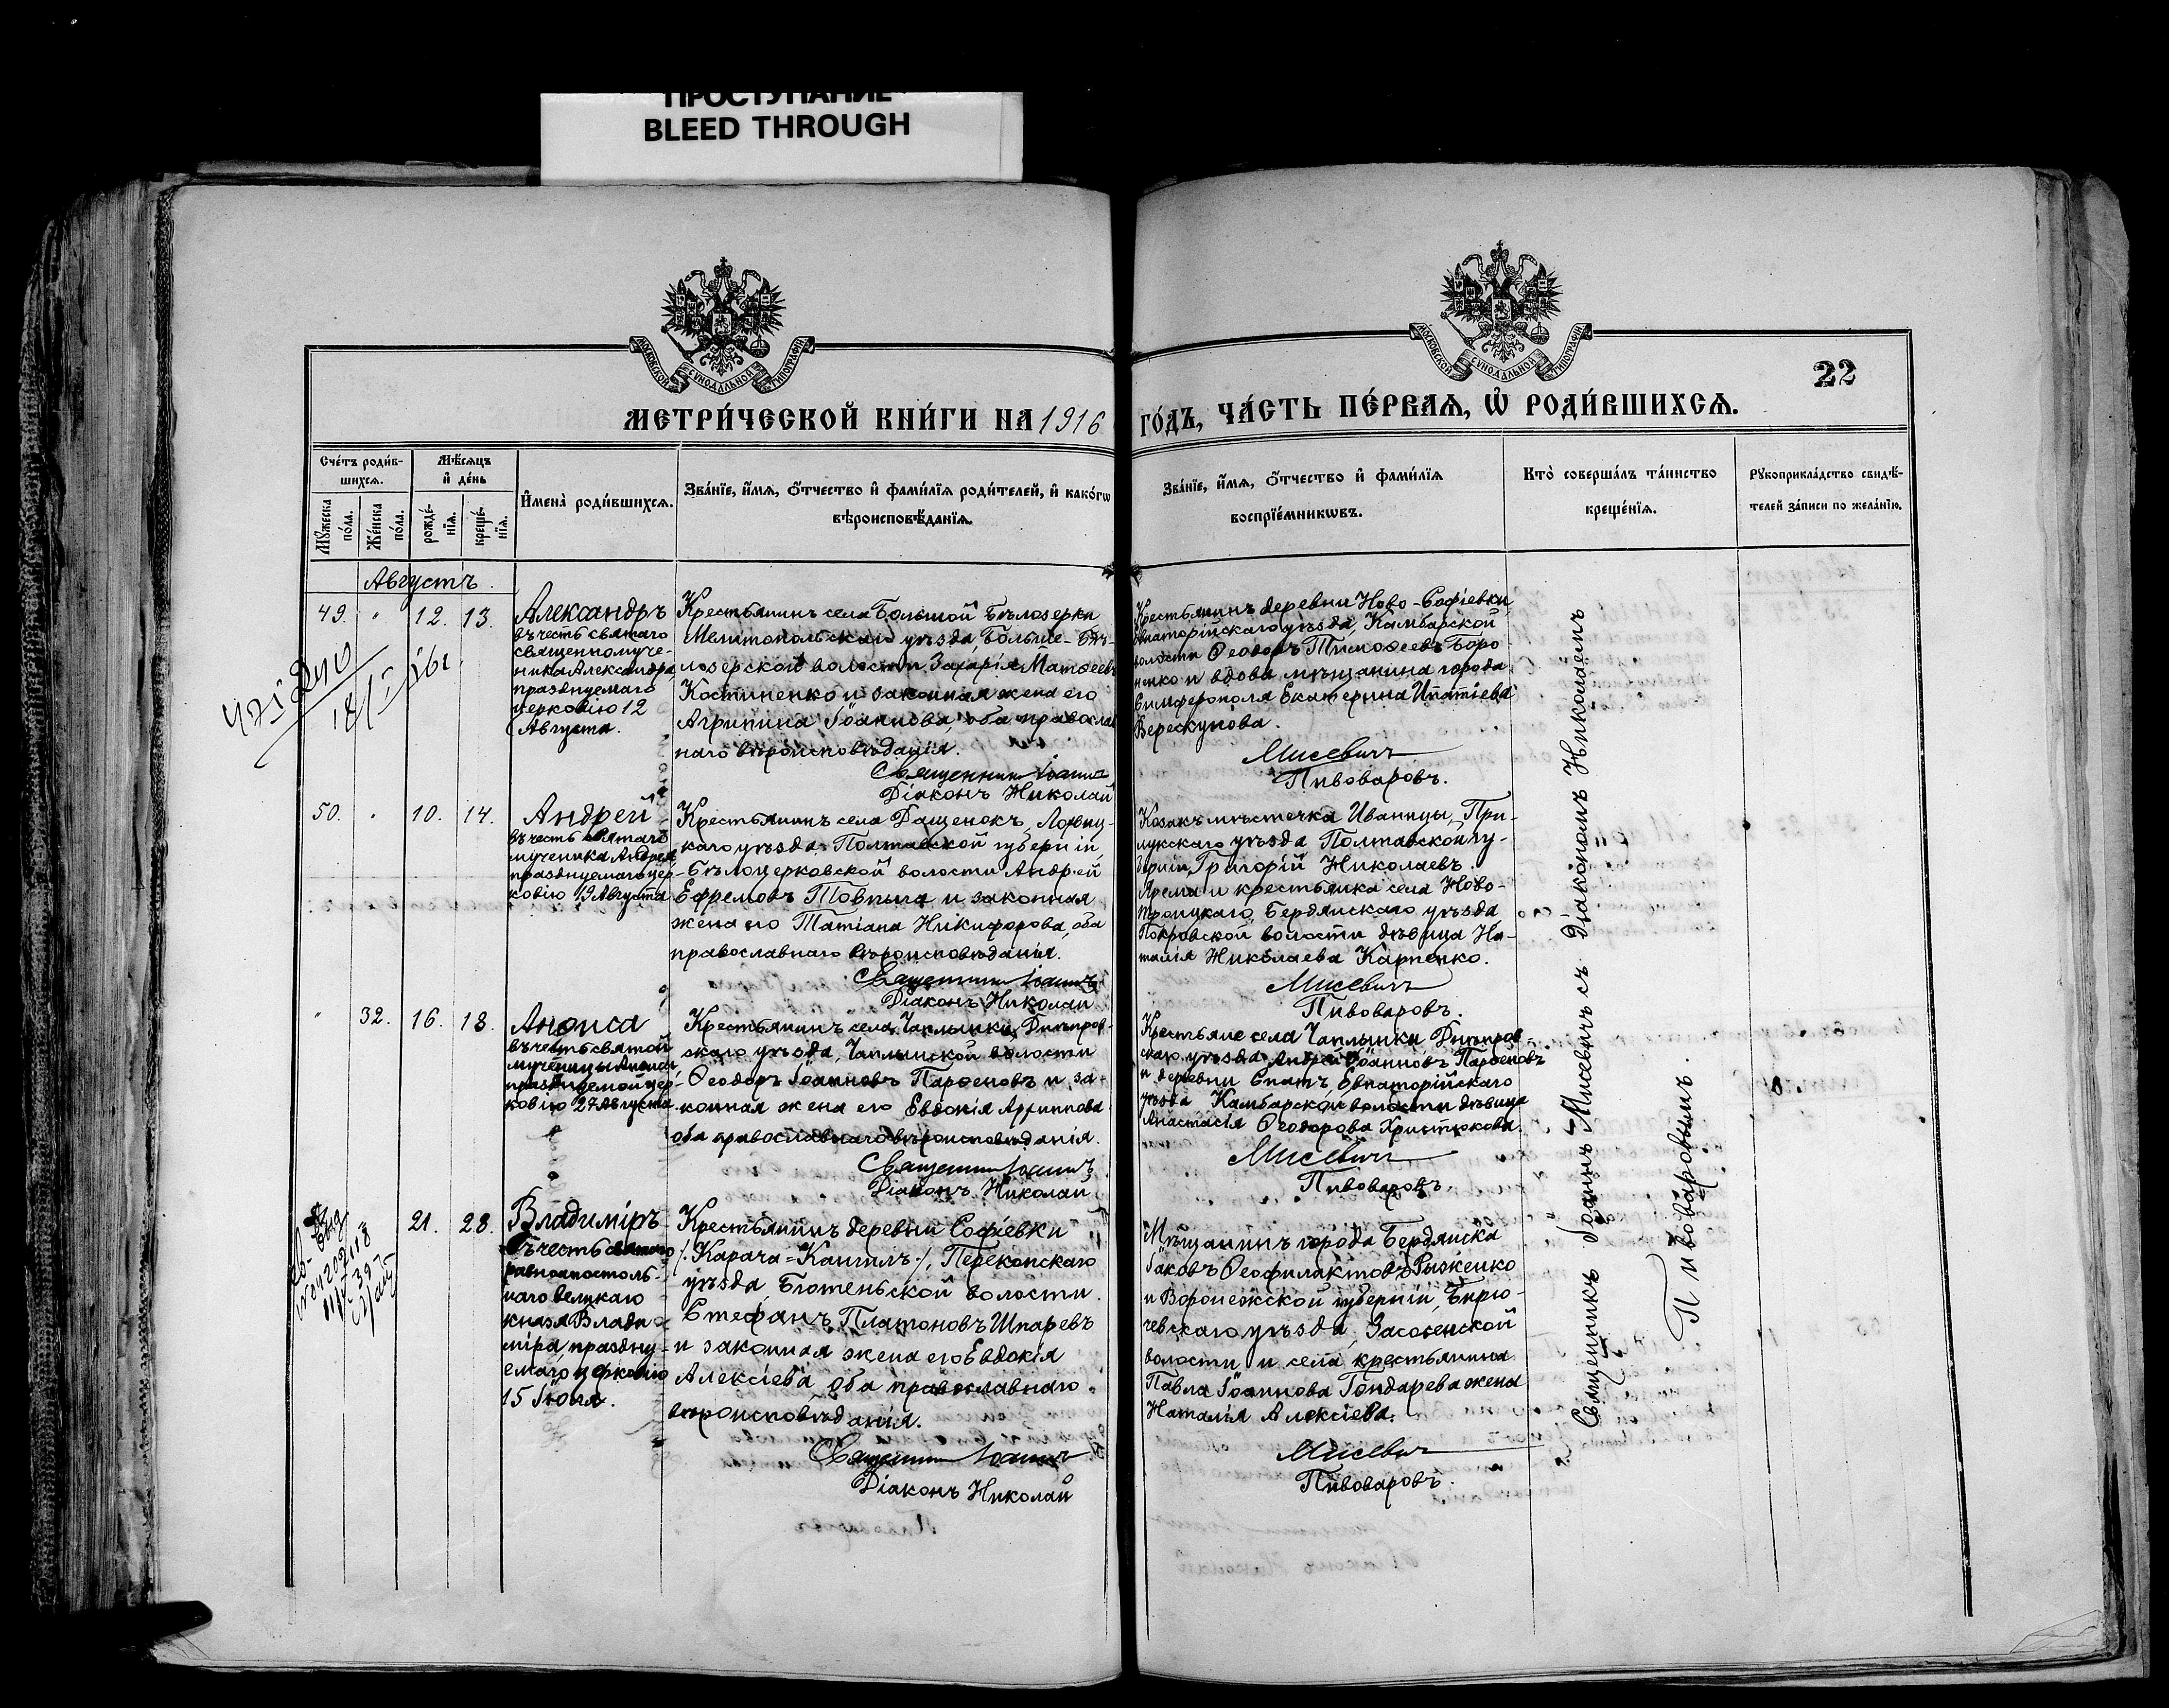 ПРОСТУПАНИЕ
BLEED THROUGH
МОСКОВСКОЙ СѴНОДАЛЬНОЙ ТИПОГРАФІИ
МОСКОВСКОЙ СѴНОДАЛЬНОЙ ТИПОГРАФІИ
22
МЕТРИ́ЧЕСКОЙ КНИ́ГИ НА 1916 ГО́ДЪ, ЧА́СТЬ ПЕ́РВАѦ, Ѡ РОДИ́ВШИХСѦ.
Сче́тъ роди́в-
шихсѧ.
Мѣ́сѧцъ
и҆ де́нь
Мꙋ́жеска
по́ла.
Же́нска
по́ла.
рожде́-
нїѧ.
креще́-
нїѧ.
И҆мена̀ роди́вшихсѧ.
Зва́нїе, и҆́мѧ, ѻ҆́тчество и҆ фами́лїѧ роди́телей, и҆ како́гѡ
вѣроисповѣ́данїѧ.
Зва́нїе, и҆́мѧ, ѻ҆́тчество и҆ фами́лїѧ
воспрїе́мникѡвъ.
Кто̀ соверша́лъ та́инство
креще́нїѧ.
Рꙋкоприкла́дство свидѣ́-
телей за́писи по жела́нїю.
Августъ
49. " 12. 13.
Александръ
въ честь святаго
священномуче-
ника Александра,
празднуемаго
церковію 12
Августа.
Крестьянинъ села Большой Бѣлозерки
Мелитопольскаго уѣзда, Больше-Бѣ-
лозерской волости Захарія Матѳеевъ
Костиненко и законная жена его
Агрипина Іоаннова, оба православ
наго вѣроисповѣданія.
Священникъ Іоаннъ
Діаконъ Николай
Крестьянинъ деревни Ново-Софіевки,
Евпаторійскаго уѣзда, Камбарской
волости Ѳеодоръ Тимоѳеевъ Боро-
ненко и вдова мѣщанина города
Симферополя Екатерина Ипатіева
Верескунова.
Мисевичъ
Пивоваровъ.
50. " 10. 14.
Андрей
въ честь святаго
мученика Андрея,
празднуемаго цер-
ковію 19 Августа
Крестьянинъ села Дащенокъ, Лохвиц-
каго уѣзда, Полтавской губерніи,
Бѣлоцерковской волости Андрей
Ефремовъ Товпыга и законная
жена его Татіана Никифорова, оба
православнаго вѣроисповѣданія.
Священникъ Іоаннъ
Діаконъ Николай
Козакъ мѣстечка Иваницы, При-
лукскаго уѣзда Полтавской гу-
берніи, Григорій Николаевъ
Ярема и крестьянка села Ново-
троицкаго, Бердянскаго уѣзда
Покровской волости дѣвица На-
талія Николаева Карпенко.
Мисевичъ
Пивоваровъ.
" 32. 16. 18.
Анѳиса
въ честь святой
мученицы Анѳисы,
празднуемой цер-
ковію 27 Августа.
Крестьянинъ села Чаплынки, Днѣпров-
скаго уѣзда, Чаплынской волости
Ѳеодоръ Іоанновъ Парѳеновъ и за-
конная жена его Евдокія Архиппова
оба православнаго вѣроисповѣданія.
Священникъ Іоаннъ
Діаконъ Николай
Крестьяне села Чаплынки Днѣпров-
скаго уѣзда Андрей Іоанновъ Парѳеновъ
и деревни Спатъ Евпаторійскаго
уѣзда Камбарской волости дѣвица
Анастасія Ѳеодорова Христюкова.
Мисевичъ
Пивоваровъ.
21. 28.
Владиміръ
въ честь святаго
равноапостоль-
наго великаго
князя Влади
міра, праздну-
емаго церковію
15 Іюля.
Крестьянинъ деревни Софіевки
/:Карача-Кангилъ:/, Перекопскаго
уѣзда, Бютеньской волости
Стефанъ Платоновъ Шпаревъ
и законная жена его Евдокія
Алексіева, оба православнаго
вѣроисповѣданія.
Священникъ Іоаннъ
Діаконъ Николай
Мѣщанинъ города Бердянска
Іаковъ Ѳеофилактовъ Рыженко
и Воронежской губерніи, Бирю-
чевскаго уѣзда, Засосенской
волости и села крестьянина
Павла Іоаннова Гондарева жена
Наталія Алексіева.
Мисевичъ
Пивоваровъ.
Священникъ Іоаннъ Мисевичъ съ Діакономъ Николаемъ
Пивоваровымъ.